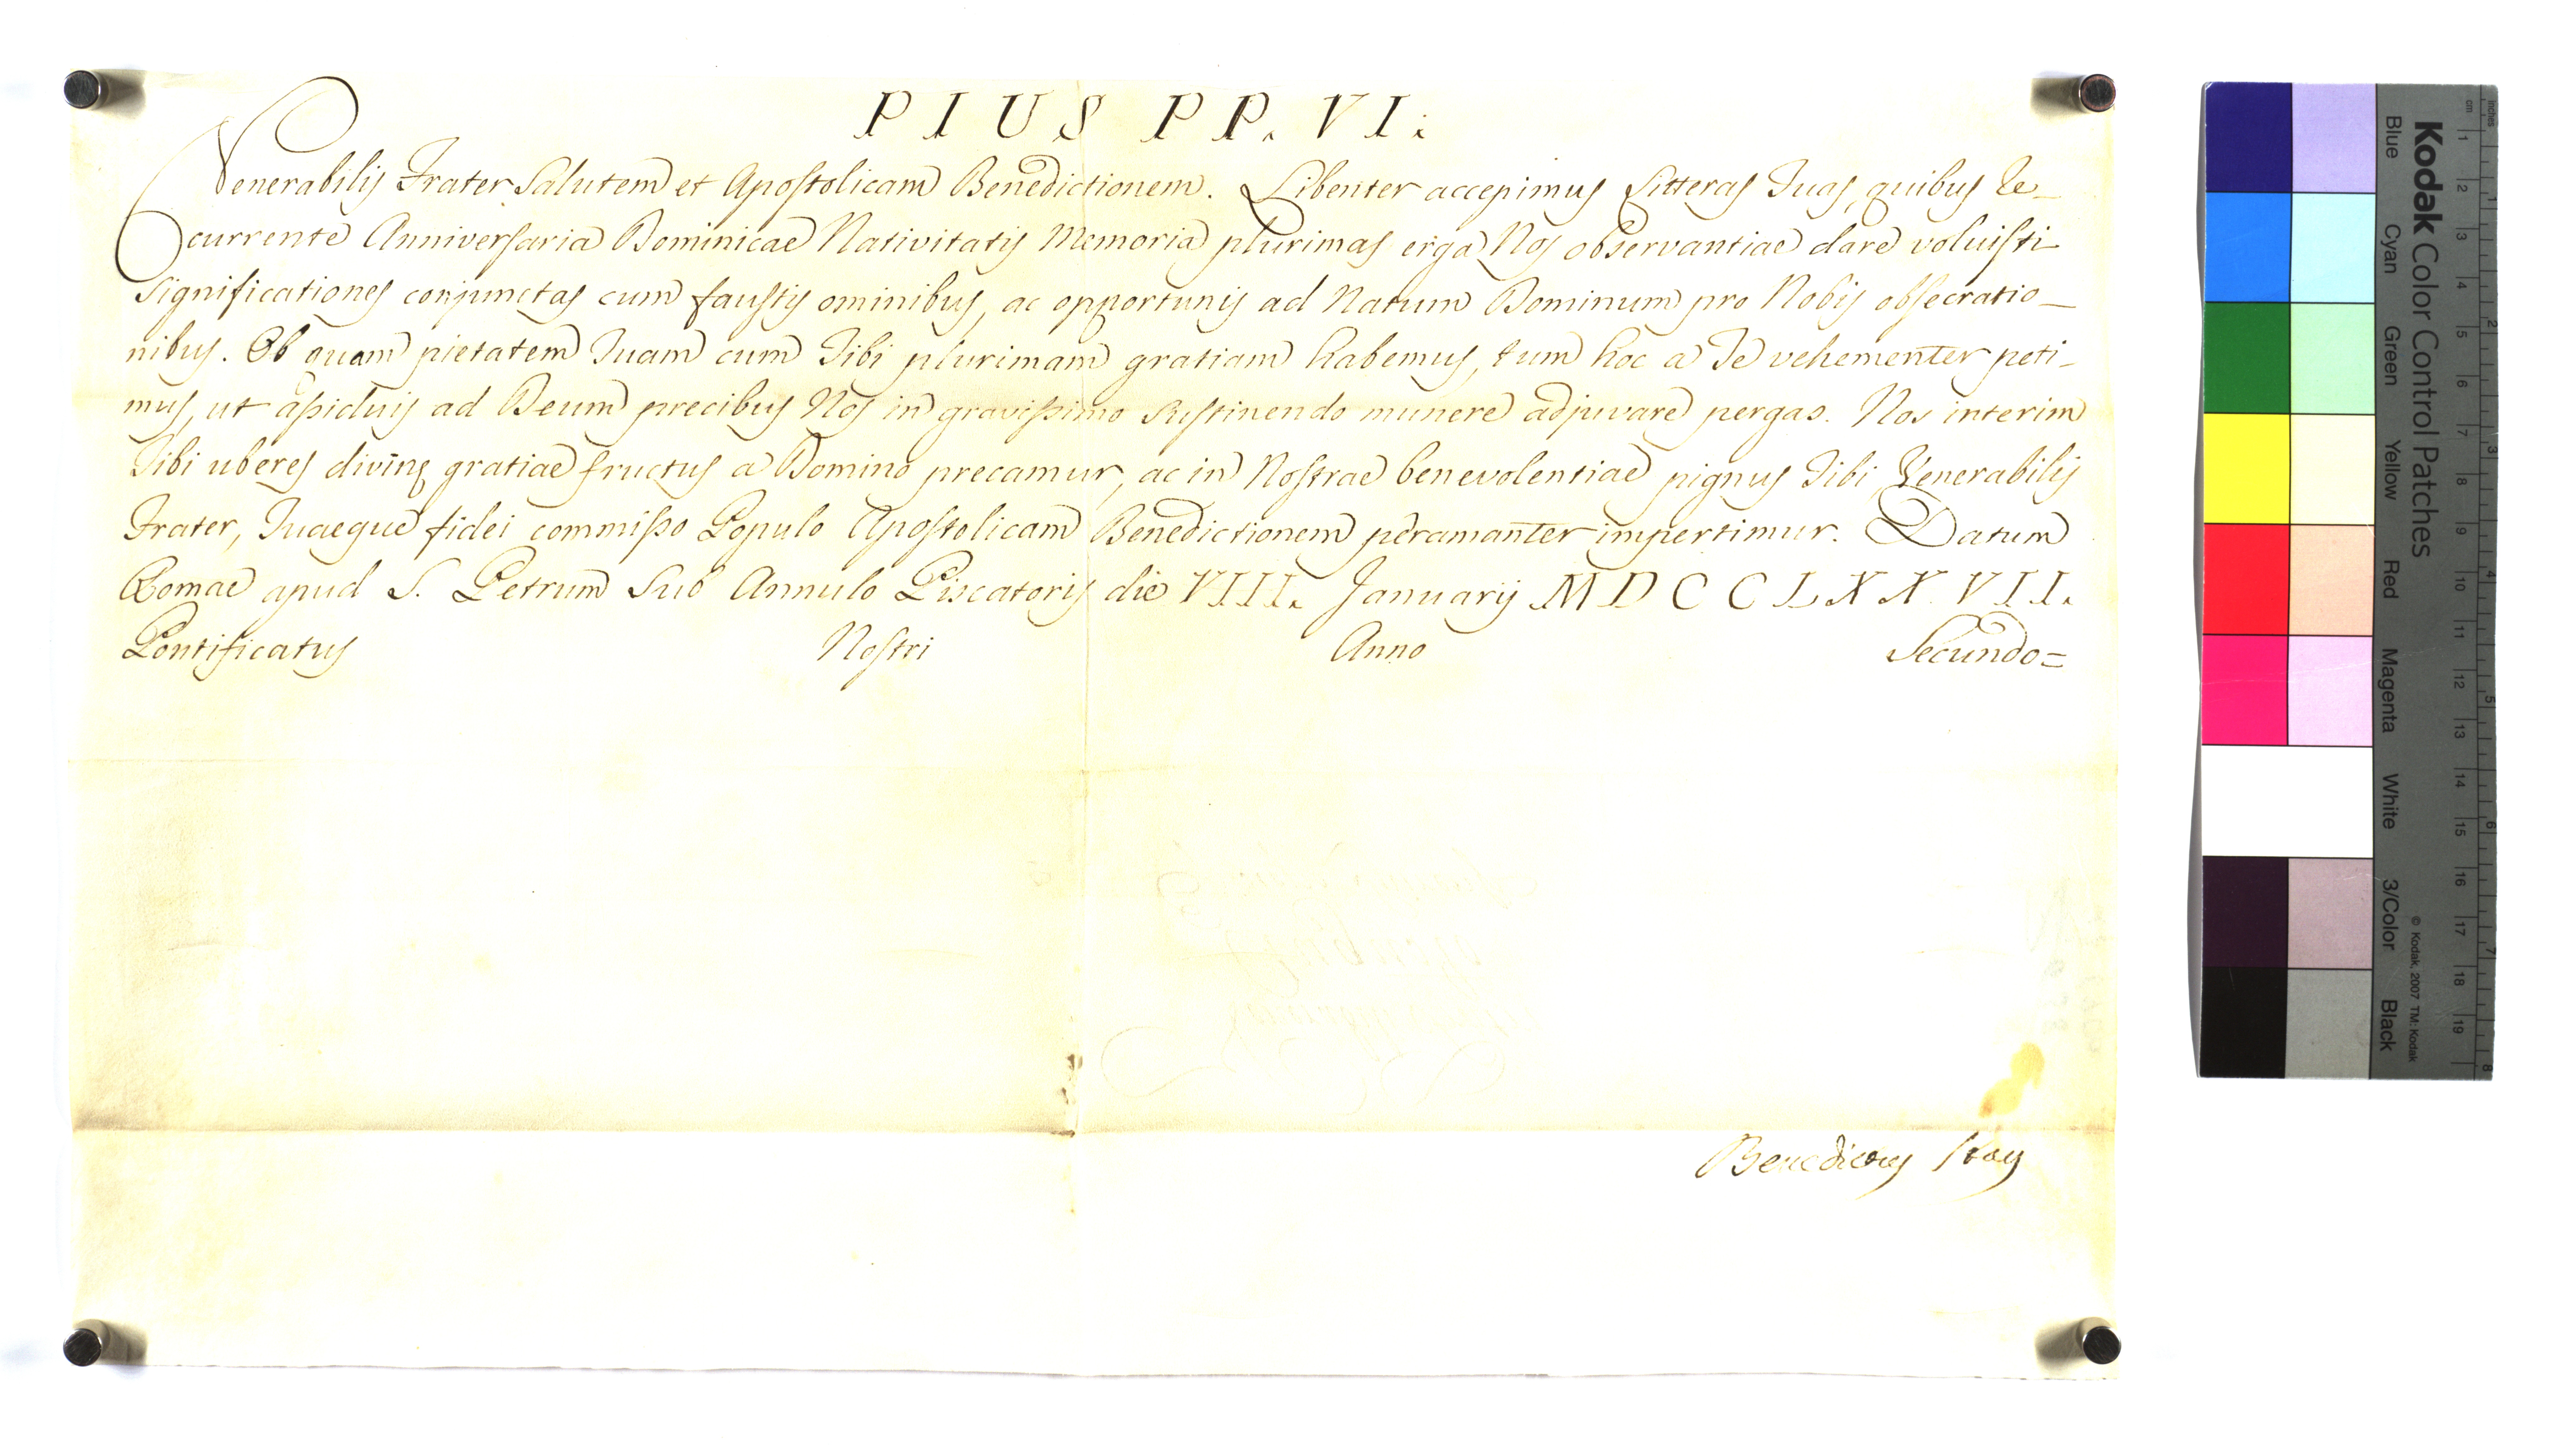 PIUS PP. VI.
Venerabilis Frater Salutem et Apostolicam Benedictionem. Libenter accepimus Litteras Tuas, quibus Re-
currente Anniversaria Dominicae Nativitatis Memoria plurimas erga Nos observantiae dare voluisti
significationes conjunctas cum faustis ominibus, ac opportunis ad Natum Dominum pro Nobis obsecratio-
nibus. Ob quam pietatem Tuam cum Tibi plurimam gratiam habemus, tum hoc a Te vehementer peti-
mus, ut assiduis ad Deum precibus Nos in gravissimo sustinendo munere adjuvare pergas. Nos interim
Tibi uberes divinę gratiae fructus a Domino precamur, ac in Nostrae benevolentiae pignus Tibi Venerabilis
Frater, Tuaeque fidei commisso Populo Apostolicam Benedictionem peramanter impertimur. Datum
Romae apud S. Petrum Sub Annulo Piscatoris die VIII. Januarij MDCCLXXVII.
Pontificatus Nostri Anno Secundo=
Benedictus Stay
Kodak Color Control Patches
Blue Cyan Green Yellow Red Magenta White 3/Color Black
© Kodak, 2007 TM: Kodak
cm 1 2 3 4 5 6 7 8 9 10 11 12 13 14 15 16 17 18 19
inches 1 2 3 4 5 6 7 8